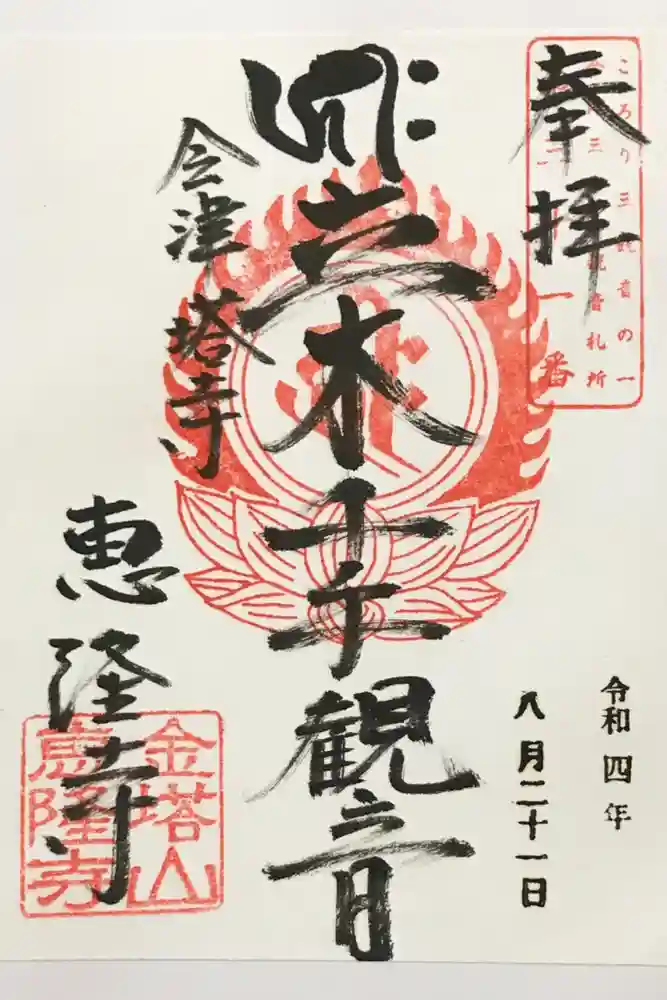 奉拝
ころり三観音の一
会津三十三観音札所
第三十一番
令和四年
八月二十一日
立木千手観音
会津塔寺
恵隆寺
金塔山
恵隆寺